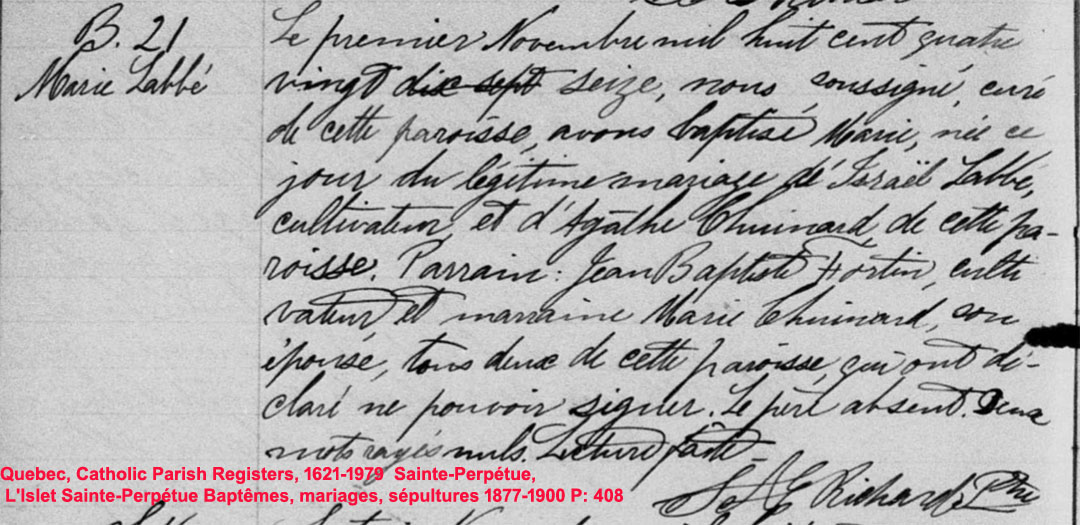 B. 21
Marie Labbé
Le premier Novembre mil huit cent quatre
vingt dix sept seize, nous soussigné, curé
de cette paroisse, avons baptisé Marie, née ce
jour du légitime mariage de Israël Labbé,
cultivateur, et d'Agathe Chuinard, de cette pa-
roisse. Parrain: Jean Baptiste Fortin, culti
vateur, et marraine Marie Chuinard, son
épouse, tous deux de cette paroisse, qui ont dé-
claré ne pouvoir signer. Le père absent. Deux
mots rayés nuls. Lecture faite -
Richard, Ptre
Quebec, Catholic Parish Registers, 1621-1979 Sainte-Perpétue,
L'Islet Sainte-Perpétue Baptêmes, mariages, sépultures 1877-1900 P: 408